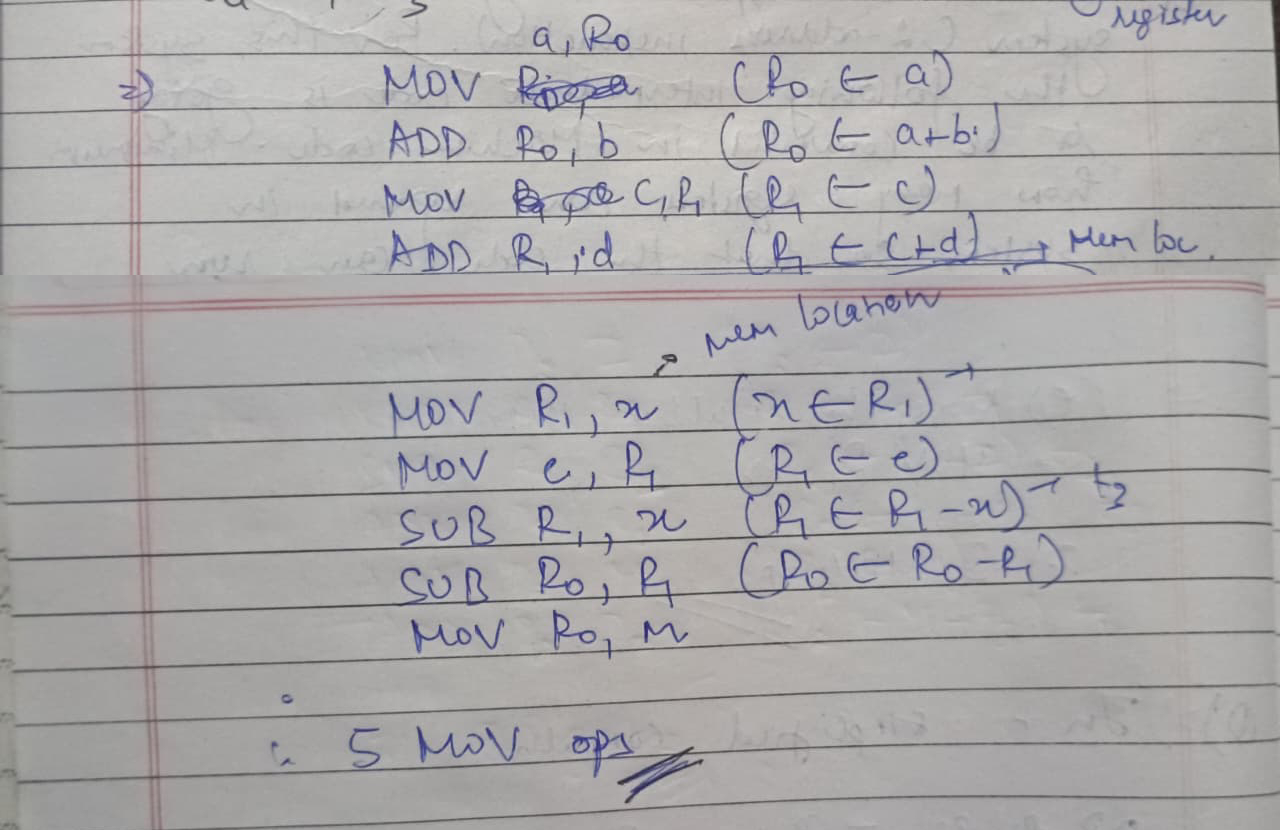 register
a, R₀
⇒ MOV (R₀ ← a)
ADD R₀, b (R₀ ← a+b)
MOV C, R₁ (R₁ ← c)
ADD R₁, d (R₁ ← c+d) → Mem loc.
Mem location
MOV R₁, x (x ← R₁)
MOV e, R₁ (R₁ ← e)
SUB R₁, x (R₁ ← R₁ - x) → t₃
SUB R₀, R₁ (R₀ ← R₀ - R₁)
MOV R₀, M
∴ 5 MOV ops